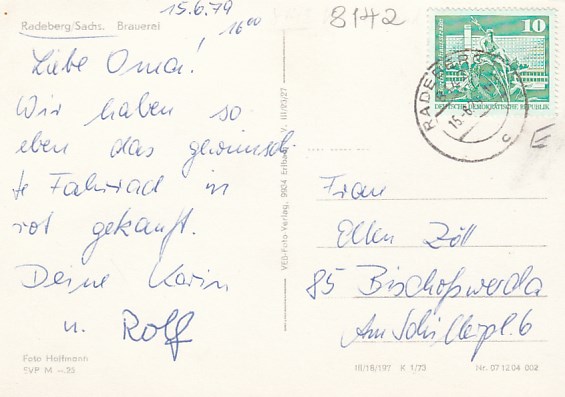 15.6.79
16⁰⁰
8142
Radeberg/Sachs. Brauerei
10
DEUTSCHE DEMOKRATISCHE REPUBLIK
RADEBERG
15.6.
c
Liebe Oma!
Wir haben so
eben das gewünsch
te Fahrrad in
rot gekauft.
Deine Karin
u. Rolf
VEB-Foto-Verlag, 9904 Erlbach III/93/27
Frau
Ellen Zöll
85 Bischofswerda
Am Schillerpl. 6
Foto Hoffmann
EVP M -.25
III/18/197 K 1/73
Nr. 07 12 04 002